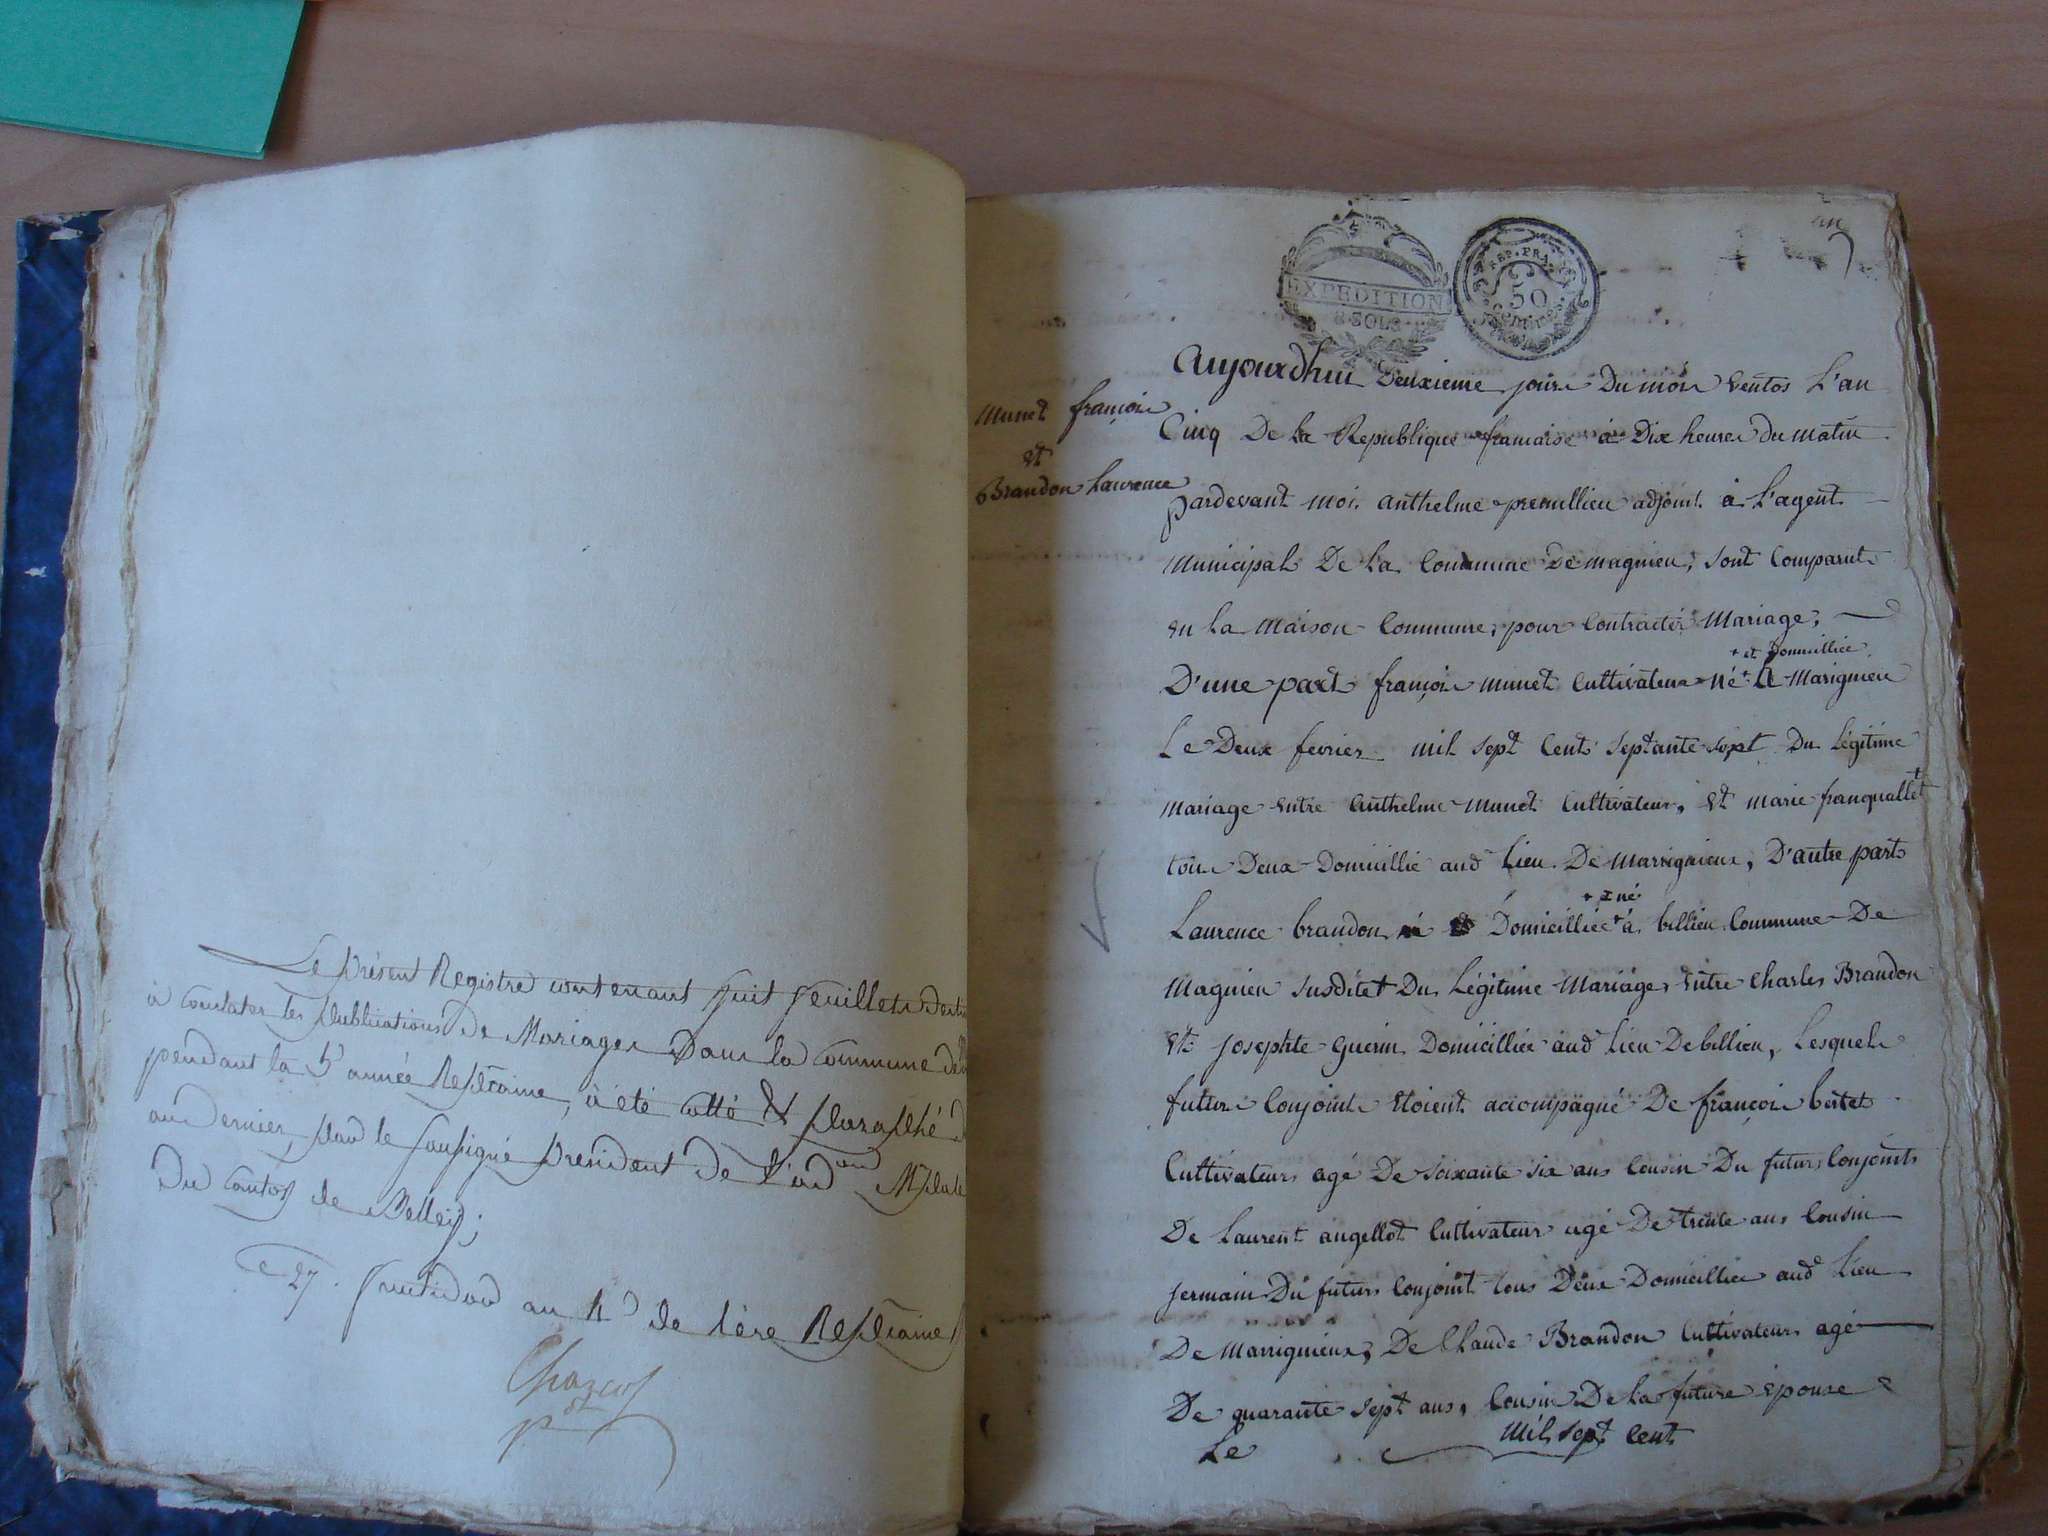 Le présent Registre contenant huit feuillets destin
à constater les publications de Mariages Dans la commune de
pendant la 5e année Replcaine, à été cotté & paraphé
au dernier, par le soussigné président de l'adon Mplale
Du canton de Belley;
Ce 27 fructidor an 4e de l'ère Replcaine
pdt
Munet françois
et
Brandon Laurence
EXPEDITION
SOLS
REP. FRA
50
Centimes
Aujourdhui Deuxieme jour Du mois ventos L'an
Cinq De la Republique francaise à Dix heures du matin
pardevant moi anthelme premillieu adjoint à L'agent
Municipal De La Commune De magnieu, sont Comparut
en La Maison Commune, pour Contracter Mariage,
+ et Domicillié
D'une part françois munet Cultivateur né + à Marignieu
Le Deux fevrier mil sept Cent septante sept Du Légitime
Mariage entre Anthelme Munet Cultivateur, et marie franquallet
tous Deux Domicillié aud Lieu De Marrignieux, D'autre parts
+ né
Laurence brandon Domicilliée + à billieu Commune De
Magnieu susditet Du Légitime Mariage entre Charles Brandon
et josephte guerin Domicilliés aud Lieu De billieu, Lesquels
futurs Conjoints etoient accompagné De françois bertet
Cultivateur agé De soixante six ans Cousin Du futur Conjoints
De Laurent angellot Cultivateur agé De trente ans Cousin
germain Du futur Conjoint tous Deux Domicilliés aud Lieu
De Marrignieux, De Claude Brandon Cultivateur agé
De quarante sept ans, Cousin De La future epouse
Le
Mil sept cent